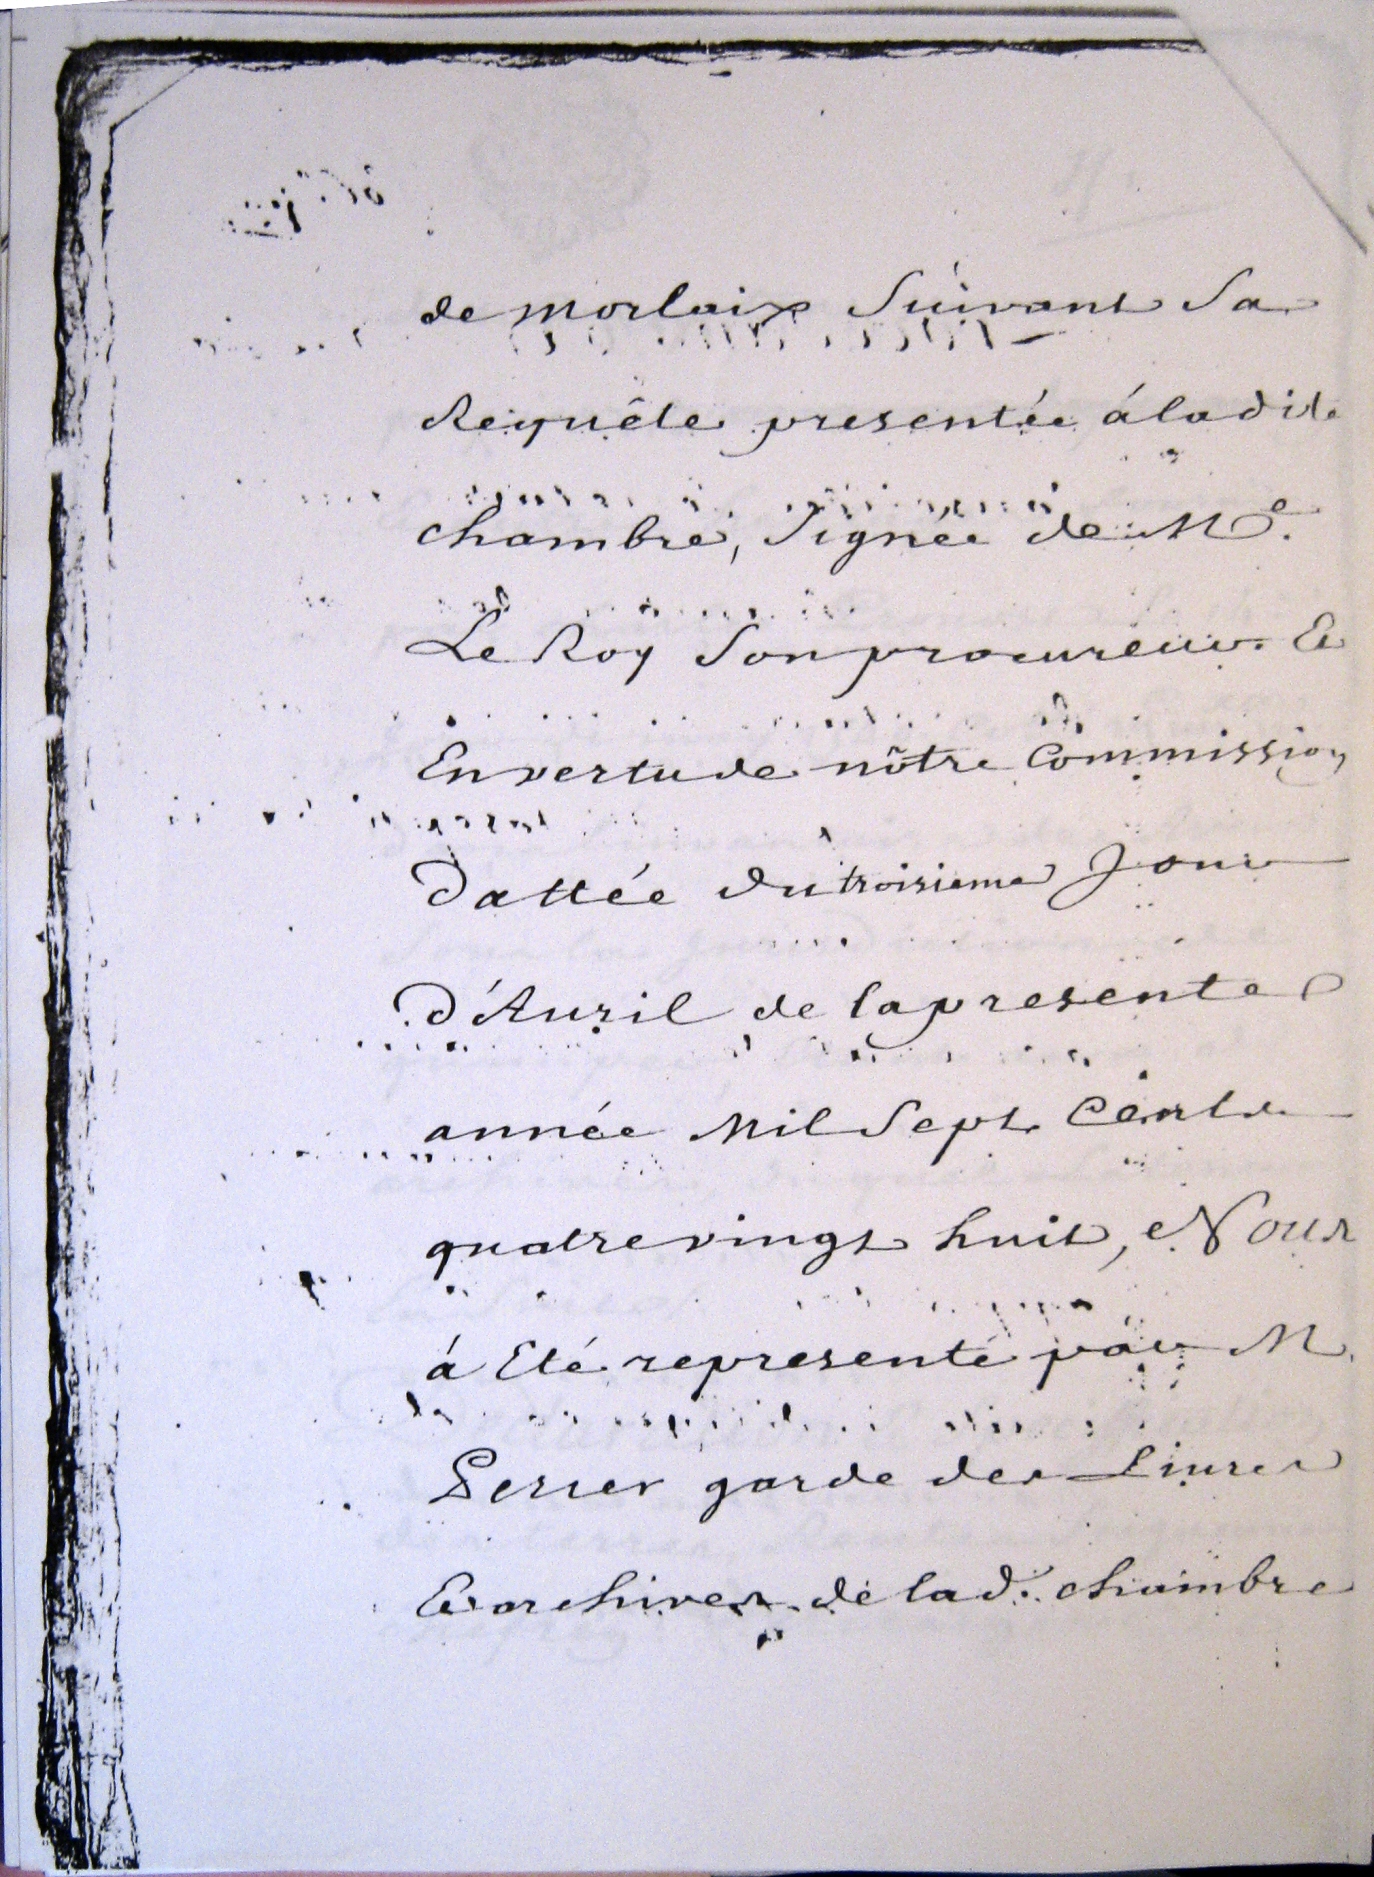 de morlaix Suivant Sa
Requête presentée á ladite
chambre, Signée de Me.
Le Roy Son procureur. Et
En vertu de nôtre Commission
Dattée du troisieme Jour
D'Auril de la presente
année Mil Sept Cents
quatre vingt huit, Nous
á Eté representé par M.
garde des Liures
Et archives de lad. chambre